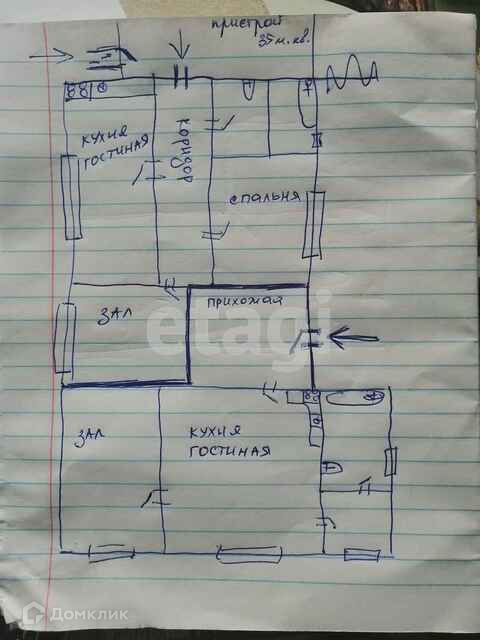 пристрой
35 м.кв.
кухня
гостиная
коридор
спальня
зал
прихожая
etagi
зал
кухня
гостиная
Домклик